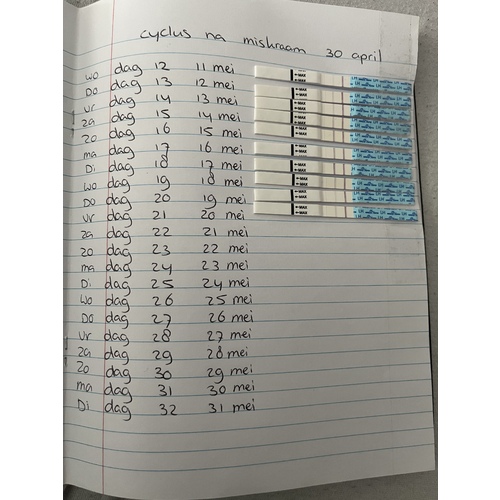 cyclus na miskraam 30 april
wo dag 12 11 mei
Do dag 13 12 mei
vr dag 14 13 mei
za dag 15 14 mei
zo dag 16 15 mei
ma dag 17 16 mei
Di dag 18 17 mei
wo dag 19 18 mei
Do dag 20 19 mei
vr dag 21 20 mei
za dag 22 21 mei
zo dag 23 22 mei
ma dag 24 23 mei
Di dag 25 24 mei
Wo dag 26 25 mei
Do dag 27 26 mei
vr dag 28 27 mei
za dag 29 28 mei
zo dag 30 29 mei
ma dag 31 30 mei
Di dag 32 31 mei
MAX
MAX
MAX
MAX
MAX
MAX
MAX
MAX
MAX